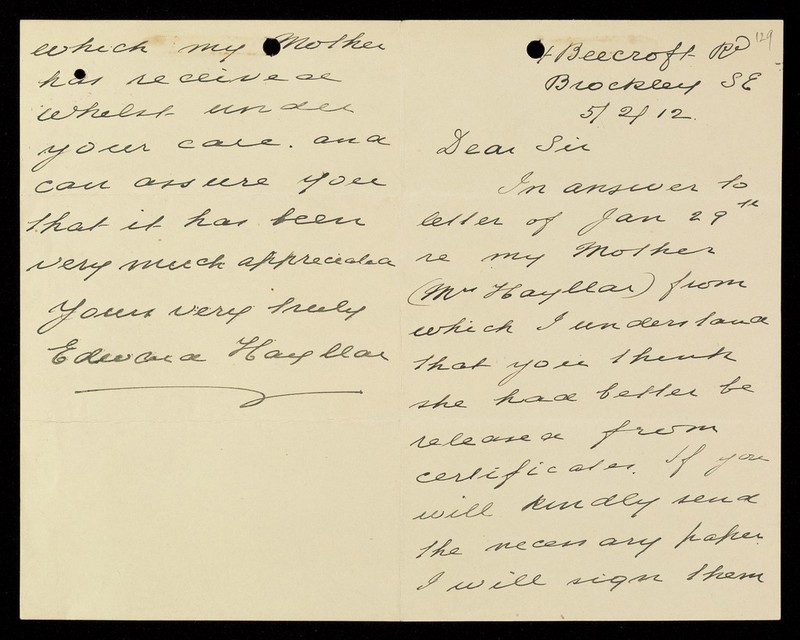 129
4 Beecroft Rd
Brockley SE
5/2/12.
Dear Sir
In answer to
letter of Jan 29th
re my Mother
(Mrs Hayllar) from
which I understand
that you think
she had better be
released from
certificates. If you
will kindly send
the necessary paper.
I will sign them
which my Mother
has received
whilst under
your care. and
can assure you
that it has been
very much appreciated
Yours very truly
Edward Hayllar